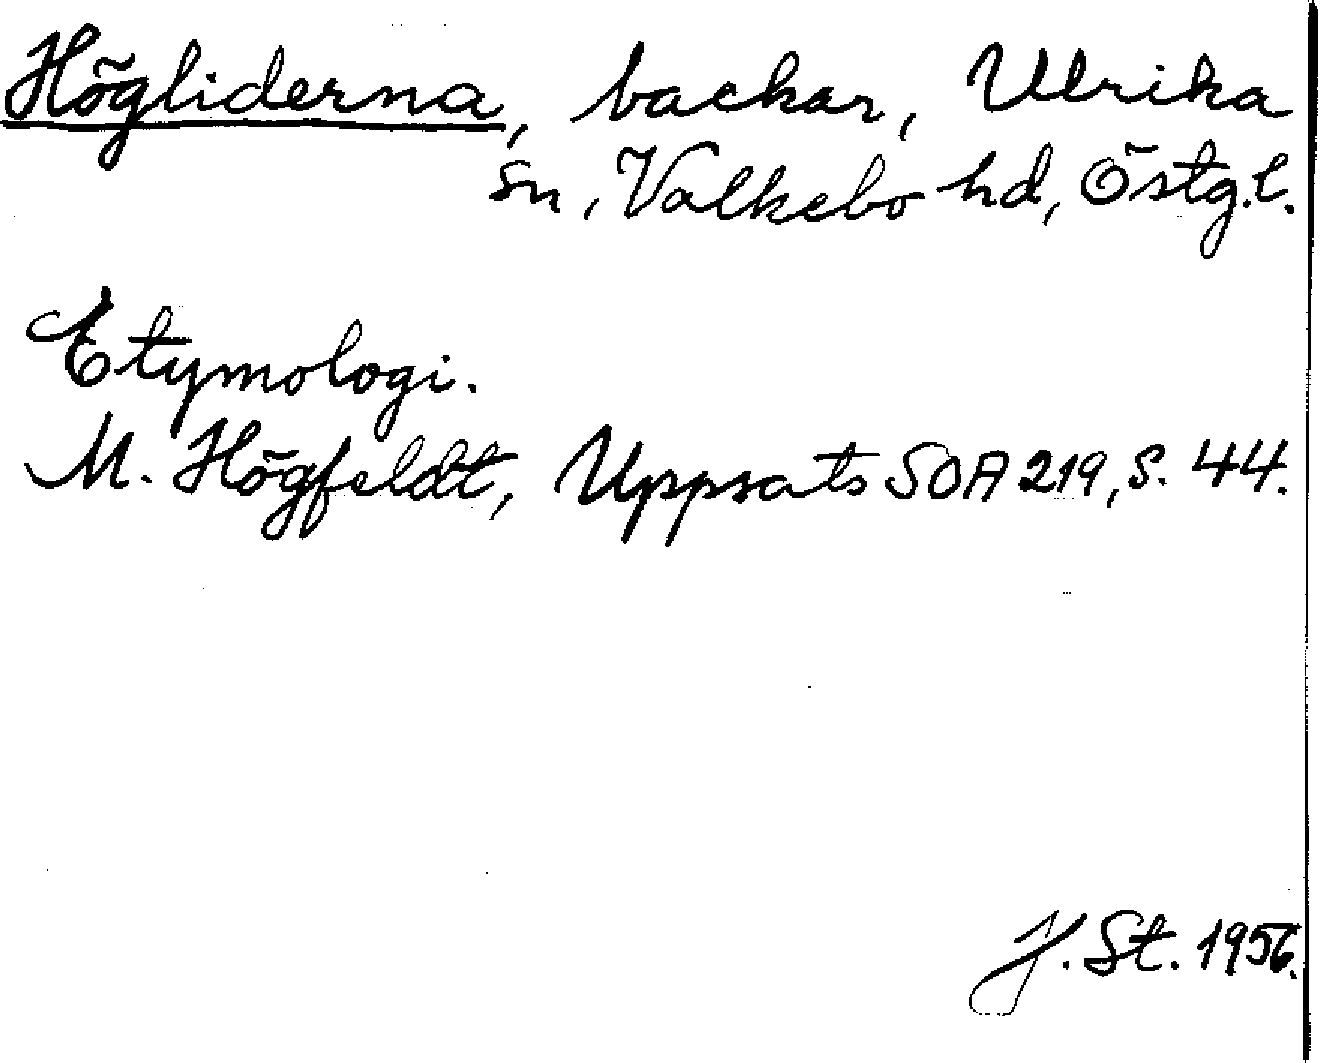 Högliderna, backar, Ulrika
sn, Valkebo hd, Östg.l.
Etymologi.
M. Högfeldt, Uppsats SOA 219, s. 44.
J. St. 1956.